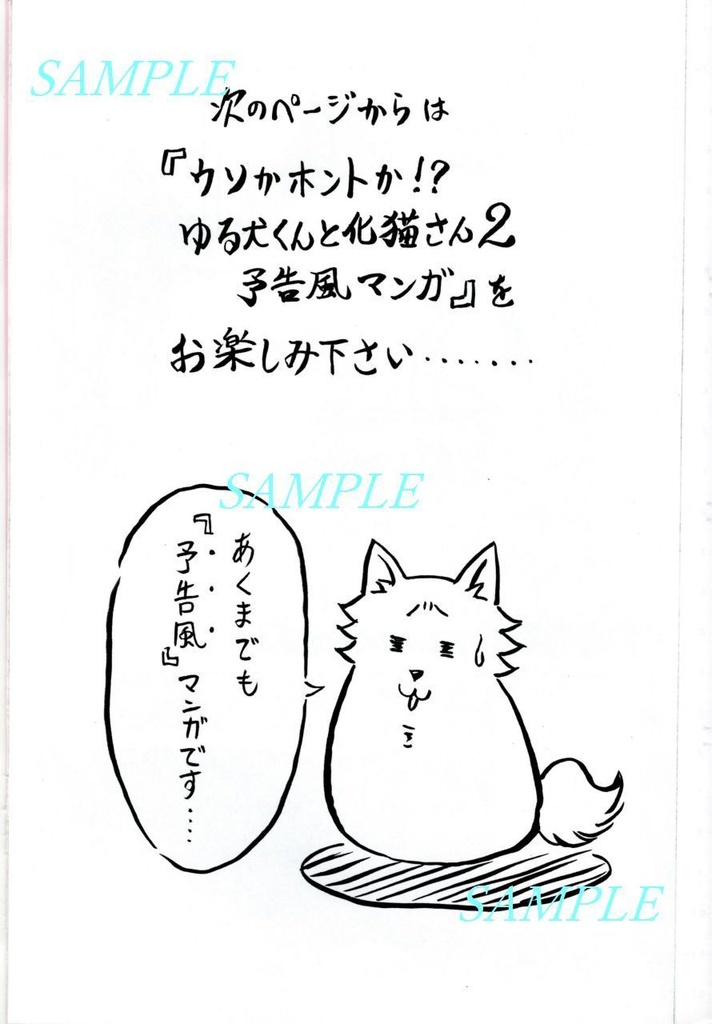 SAMPLE
次のページからは
『ウソかホントか!?
ゆる犬くんと化猫さん2
予告風マンガ』を
お楽しみ下さい.......
SAMPLE
あくまでも
『予告風』マンガです.....
SAMPLE